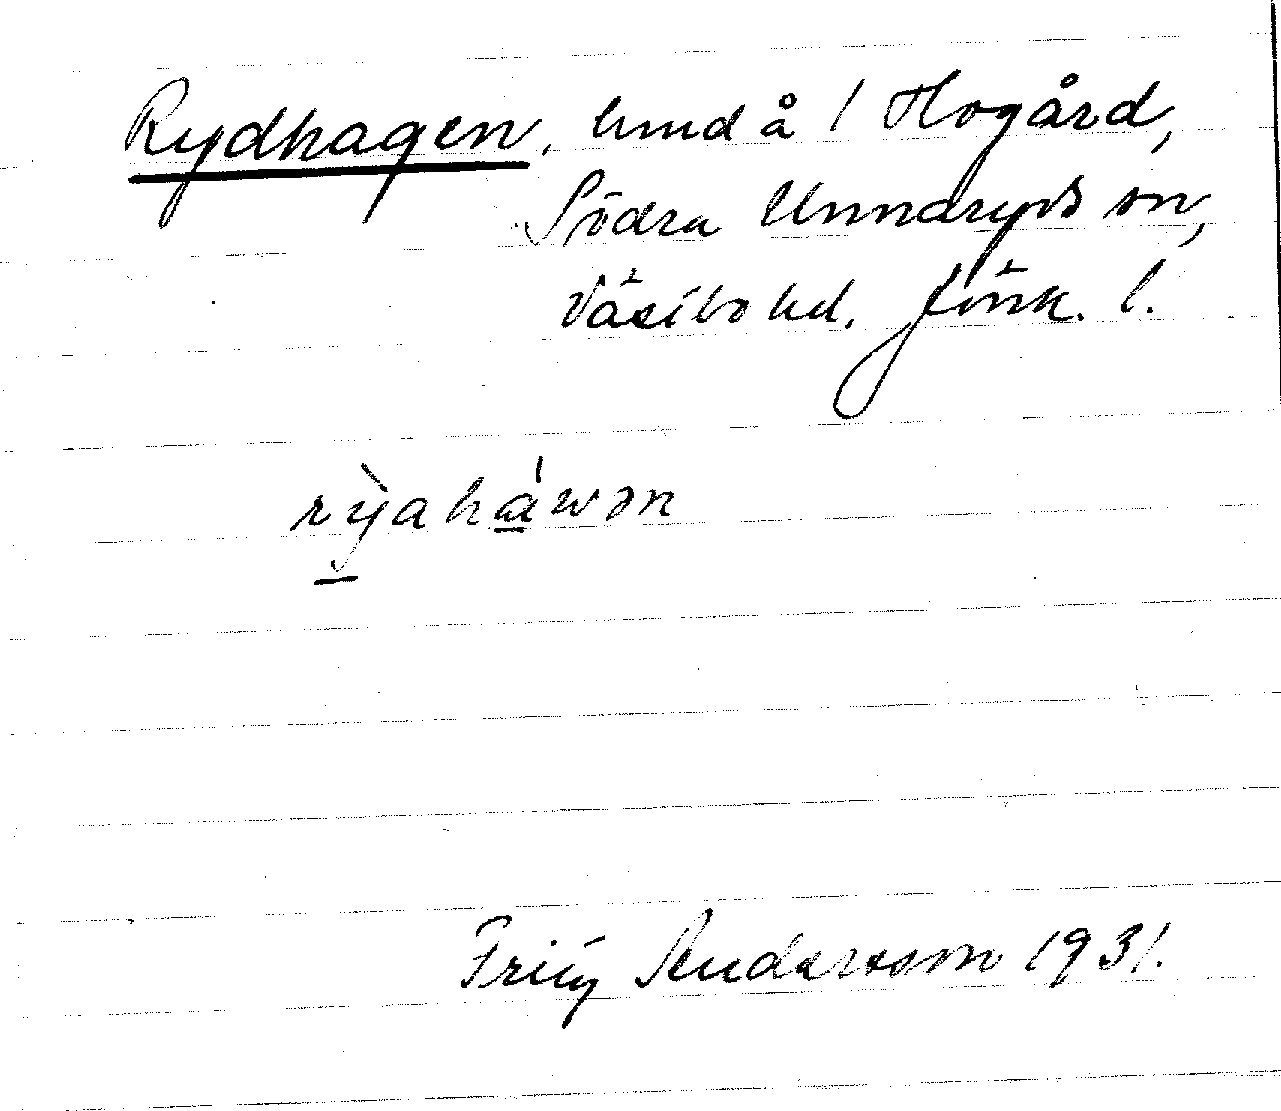 Rydhagen, lund å 1 Hogård,
Södra Unnaryds sn,
Västbo hd. Jönk. l.
rỳahàwən
Fritz Andersson 1931.